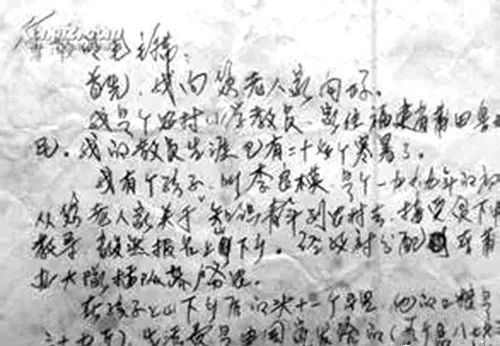 尊敬的毛主席：
首先，我向您老人家问好。
我是个农村小学教员，家住福建省莆田县
民。我的教员生涯已有二十多个寒暑了。
我有个孩子，叫李良模，是个一九六八年的初
从您老人家关于“知识青年到农村去，接受贫下
教导，毅然报名上山下乡。经政府分配在莆
大队插队落户务农。
在孩子上山下乡后的头十一个月里，他的口粮是
三十七斤），生活费是由国家发给的（每个月八块